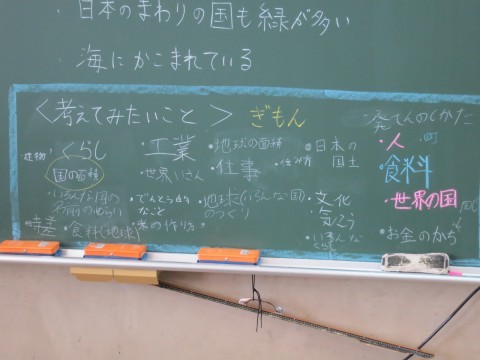 ・日本のまわりの国も緑が多い
・海にかこまれている
<考えてみたいこと> ぎもん
建物 くらし ・工業 ・地球の面積 ・日本の国土
国の面積 ・世界いさん ・仕事 ・住み方
いろんな国の ・でんとう的なこと ・地球(いろんな国)のつくり ・文化
・食料(地球) ・米の作り方 気こう
・いろんな
・人 ・町
食料
・世界の国
・お金のかち